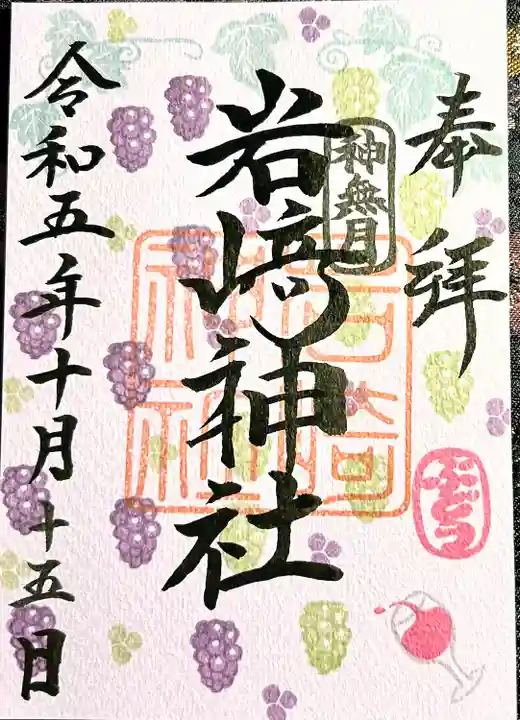 奉拝
神無月
岩﨑神社
岩崎神社
ぶどう
令和五年十月十五日